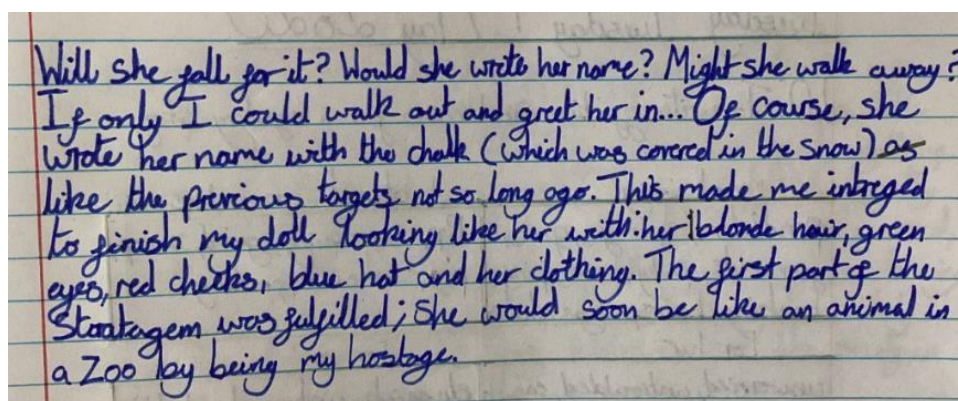 Will she fall for it? Would she wrote her name? Might she walk away?
If only I could walk out and greet her in... Of course, she
wrote her name with the chalk (which was covered in the snow) as
like the previous targets not so long ago. This made me intreged
to finish my doll looking like her with: her blonde hair, green
eyes, red cheeks, blue hat and her clothing. The first part of the
Stratagem was fulfilled; She would soon be like an animal in
a Zoo by being my hostage.